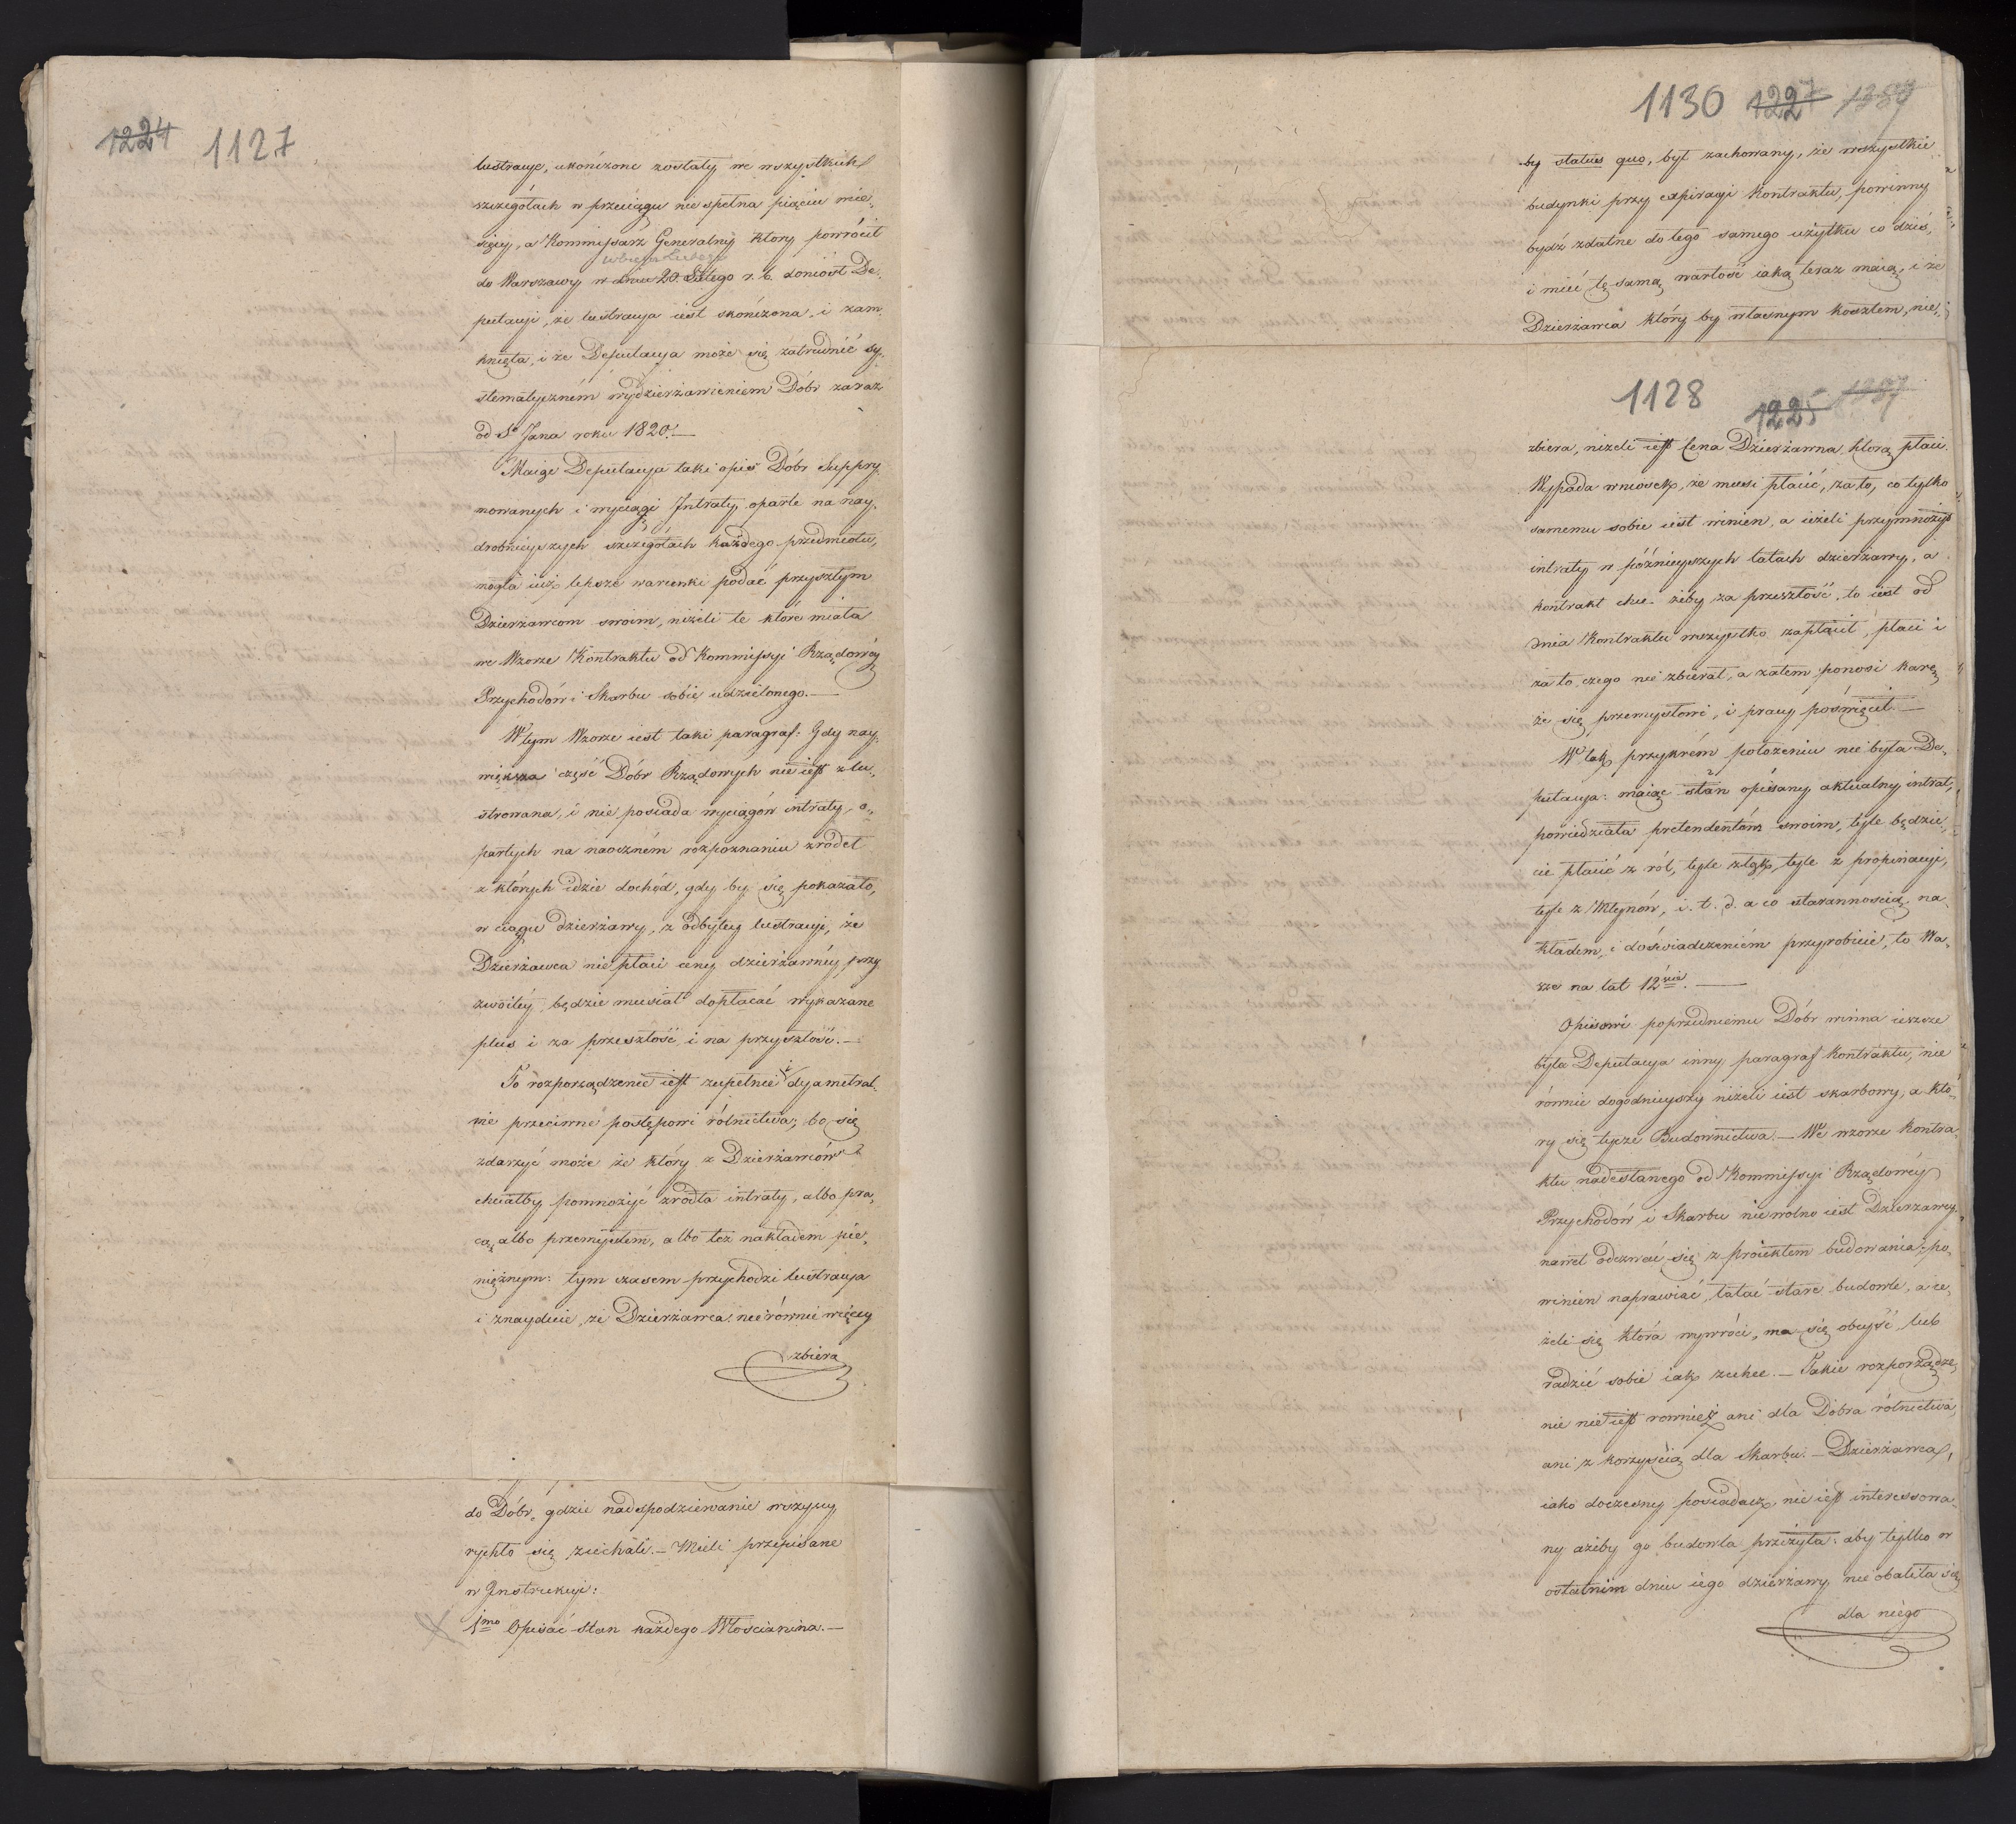 1224 1127
lustracye, ukończone zostały we wszystkich
szczegółach w przeciągu nie spełna pięciu mie,
sięcy, a Kommissarz Generalny ktory powrócił
do Warszawy w dniu 20. Lutego r. b. doniósł De,
putacyi, że lustracya iest skończona, i zam,
knięta, i że Deputacya może się zatrudnić sy,
stematyczném wydzierżawieniem Dóbr zaraz
od Sº Jana roku 1820.—
Maiąc Deputacya taki opis Dóbr Suppry,
mowanych i wyciągi Intraty, oparte na nay,
drobnieyszych szczegółach każdego przedmiotu,
mogła iuż lepsze warunki podać przyszłym
Dzierżawcom swoim, niżeli te które miała
we Wzorze Kontraktu od Kommissyi Rządowéy
Przychodów i Skarbu sobie udzielonego.—
W tym Wzorze iest taki paragraf: Gdy nay,
większa część Dóbr Rządowych nie iest zlu,
strowana, i nie posiada wyciągów intraty, o,
partych na naoczném rozpoznaniu źródeł
z których idzie dochód, gdy by się pokazało,
w ciągu dzierżawy, z odbytey lustracyi, że
Dzierżawca nie płaci ceny dzierżawnéy przy
zwoitéy, będzie musiał dopłacać wykazane
plus i za przeszłość i na przyszłość.—
To rozporządzenie iest zupełnie i dyametral,
nie przeciwne postępowi rólnictwa; bo się
zdarzyć może że który z Dzierżawców
chciałby pomnożyć źrodła intraty, albo pra,
cą, albo przemysłem, albo też nakładem pie,
niężnym: tym czasem przychodzi lustracya
i znaydzie, że Dzierżawca nierównie więcey
zbiera
do Dóbr, gdzie nadspodziewanie wszyscy
rychło się ziechali.— Mieli przepisane
w Instrukcyi:
1mo Opisać stan każdego Włościanina.—
1130 1227 1389
by status quo, był zachowany, że wszystkie
budynki przy expiracyi Kontraktu, powinny
bydź zdatne do tego samego użytku co dziś,
i mieć tę samą wartość iaką teraz maią, i że
Dzierżawca który by własnym kosztem, nie,
1128 1225
zbiera, niżeli iest Cena Dzierżawna, którą płaci.
Wypada wniosek, że musi płacić, za to, co tylko
samemu sobie iest winien, a ieżeli przymnożył
intraty w późnieyszych latach dzierżawy, a
kontrakt chce żeby za przeszłość, to iest od
dnia Kontraktu wszystko zapłacił, płaci i
za to, czego nie zbierał, a zatem ponosi karę,
że się przemysłowi, i pracy poświęcił.—
W tak przykrém położeniu nie była De,
putacya: maiąc stan opisany aktualny intrat,
powiedziała pretendentóm swoim, tyle będzie,
cie płacić z ról, tyle z łąk, tyle z propinacyi,
tyle z Młynów, i. t. d. a co starannością, na,
kładem, i doświadczeniém przyrobicie, to Wa,
sze na lat 12ście.—
Opisowi poprzedniemu Dóbr winna ieszcze
była Deputacya inny paragraf Kontraktu, nie
równie dogodnieyszy niżeli iest skarbowy, a któ,
ry się tycze Budownictwa.— We wzorze Kontra,
ktu nadesłanego od Kommissyi Rządowéy
Przychodów i Skarbu nie wolno iest Dzierżawcy
nawet odezwać się z proiektem budowania; po,
winien naprawiać, łatać stare budowle, a ie,
żeli się która wywróci, ma się obeyść, lub
radzić sobie iak zechce.— Takie rozporządze,
nie nie iest rownież ani dla Dobra rólnictwa,
ani z korzyścią dla Skarbu.— Dzierżawca,
iako doczesny posiadacz, nie iest interessowa,
ny ażeby go budowla przeżyła: aby tylko w
ostatnim dniu iego dzierżawy, nie obaliła się
dla niego